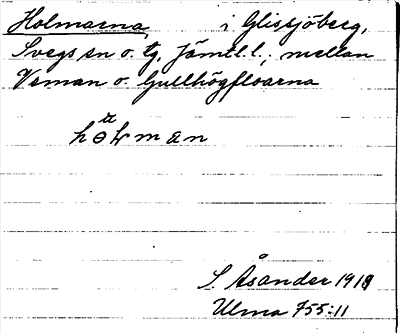 Holmarna i Glissjöberg,
Svegs sn o. tg, Jämtl. l.; mellan
Veman o. Gullhögfloarna
S. Åsander 1918
Ulma 755:11